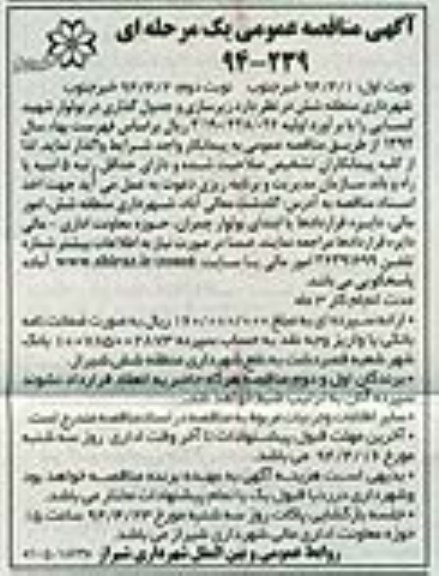 آگهی مناقصه عمومی یک مرحله ای
۹۴-۲۳۹
نوبت اول: ۹۴/۳/۱ خبرجنوب نوبت دوم: ۹۴/۳/۲ خبرجنوب
شهرداری منطقه شش در نظر دارد زیرسازی و جدول گذاری در بولوار شهید
را با برآورد اولیه ریال براساس فهرست بهاء سال
۱۳۹۴ از طریق مناقصه عمومی به پیمانکار واجد شرایط واگذار نماید. لذا
از کلیه پیمانکاران تشخیص صلاحیت شده و دارای حداقل رتبه ۵ ابنیه یا
راه و باند سازمان مدیریت و برنامه ریزی دعوت به عمل می آید جهت اخذ
اسناد مناقصه به آدرس گلدشت معالی آباد، شهرداری منطقه شش، امور
مالی، دایره قراردادها یا ابتدای بولوار چمران، حوزه معاونت اداری - مالی
دایره قراردادها مراجعه نمایند. ضمنا در صورت نیاز به اطلاعات بیشتر شماره
تلفن امور مالی یا سایت آماده
پاسخگویی می باشد.
مدت انجام کار ۳ ماه
• ارائه سپرده ای به مبلغ ریال به صورت ضمانت نامه
بانکی یا واریز وجه نقد به حساب سپرده بانک
شهر شعبه قصردشت به نفع شهرداری منطقه شش شیراز.
• برندگان اول و دوم مناقصه هرگاه حاضر به انعقاد قرارداد نشوند
سپرده آنان به ترتیب ضبط خواهد شد.
• سایر اطلاعات و جزئیات مربوط به مناقصه در اسناد مناقصه مندرج است.
• آخرین مهلت قبول پیشنهادات تا آخر وقت اداری روز سه شنبه
مورخ می باشد.
• بدیهی است هزینه آگهی به عهده برنده مناقصه خواهد بود
و شهرداری در رد یا قبول یک یا تمام پیشنهادات مختار می باشد.
• جلسه بازگشایی پاکات روز سه شنبه مورخ ساعت ۱۵
حوزه معاونت اداری مالی شهرداری شیراز می باشد.
روابط عمومی و بین الملل شهرداری شیراز